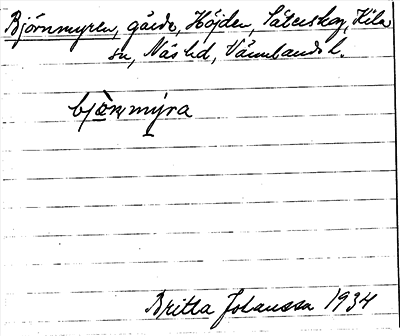 Björnmyren, gård, Höjden, Säterskog, Kila
sn, Näs hd, Värmlands l.
bjò̱ṇmýra
Britta Johansson 1934